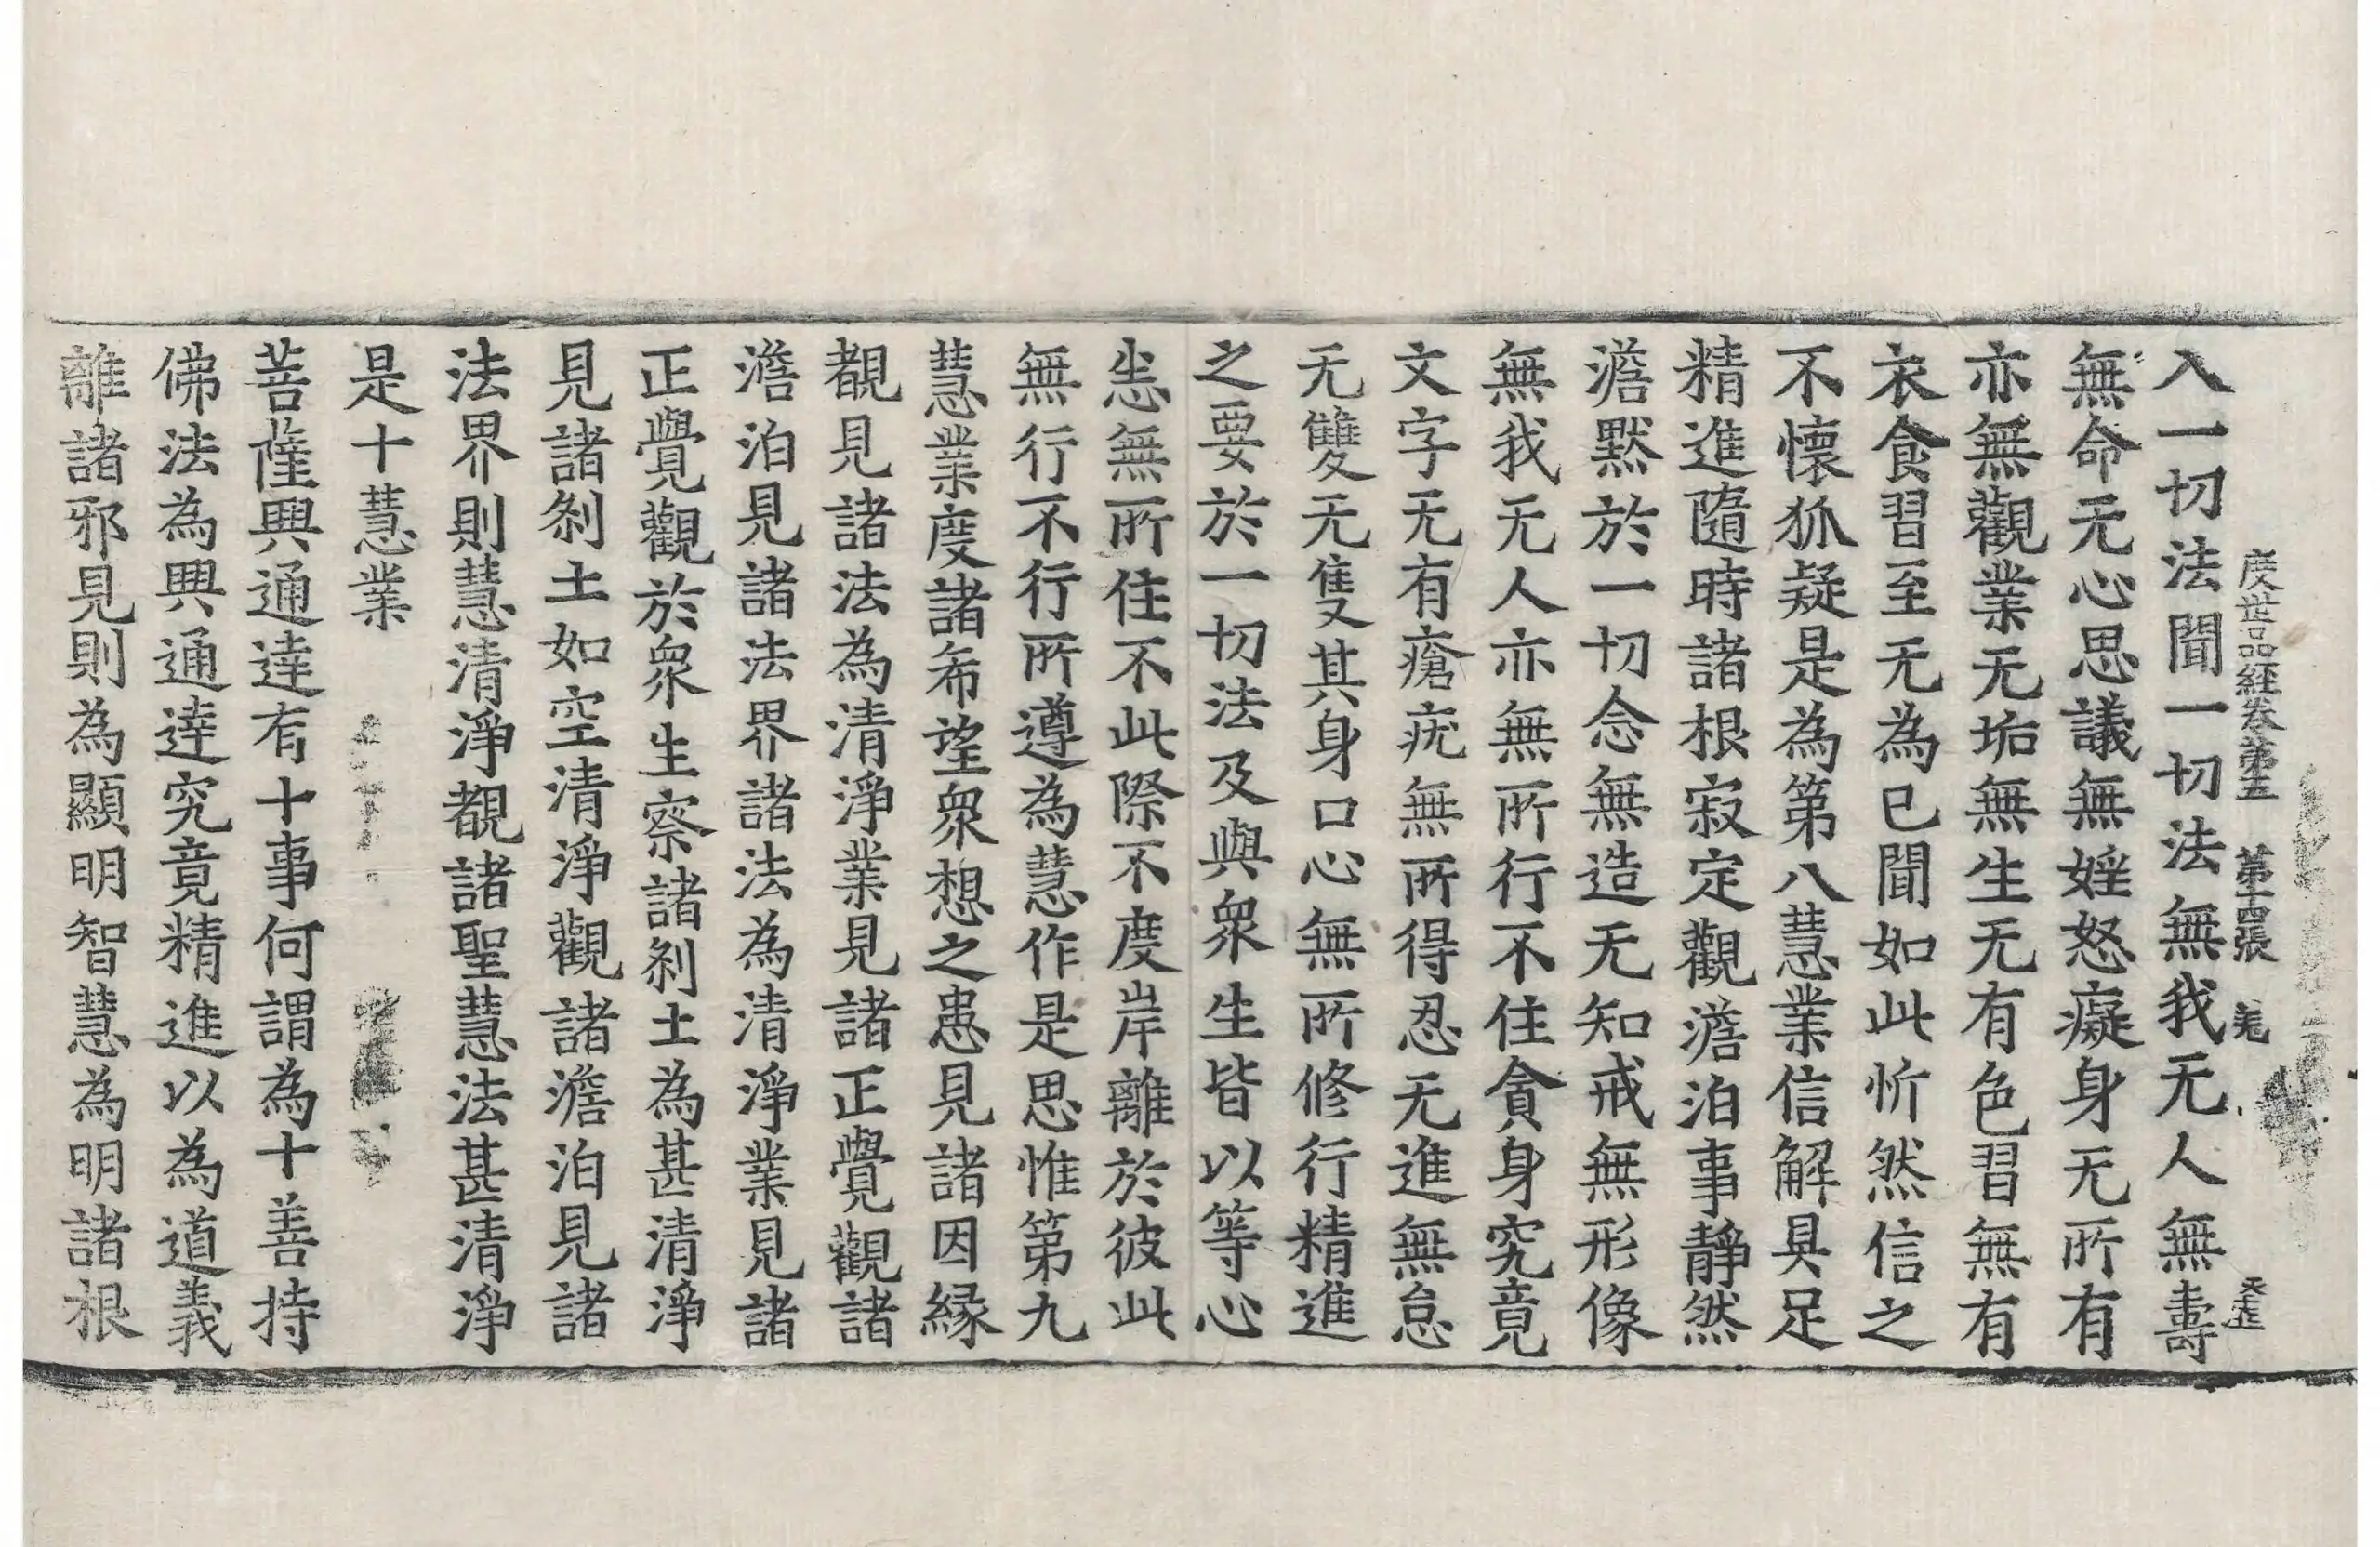 度世品經卷第五 第十四張 羗 夭𡊮
入一切法聞一切法無我无人無壽
無命无心思議無婬怒癡身无所有
亦無觀業无垢無生无有色習無有
衣食習至无為已聞如此忻然信之
不懷狐疑是為第八慧業信解具足
精進隨時諸根寂定觀澹泊事靜然
澹默於一切念無造无知戒無形像
無我无人亦無所行不住貪身究竟
文字无有瘡疣無所得忍无進無怠
无雙无隻其身口心無所修行精進
之要於一切法及與衆生皆以等心
恙無所住不此際不度岸離於彼此
無行不行所遵為慧作是思惟第九
慧業度諸希望衆想之患見諸因縁
覩見諸法為清淨業見諸正覺觀諸
澹泊見諸法界諸法為清淨業見諸
正覺觀於衆生察諸刹土為甚清淨
見諸刹土如空清淨觀諸澹泊見諸
法界則慧清淨覩諸聖慧法甚清淨
是十慧業
菩薩興通達有十事何謂為十善持
佛法為興通達究竟精進以為道義
離諸邪見則為顯明智慧為明諸根